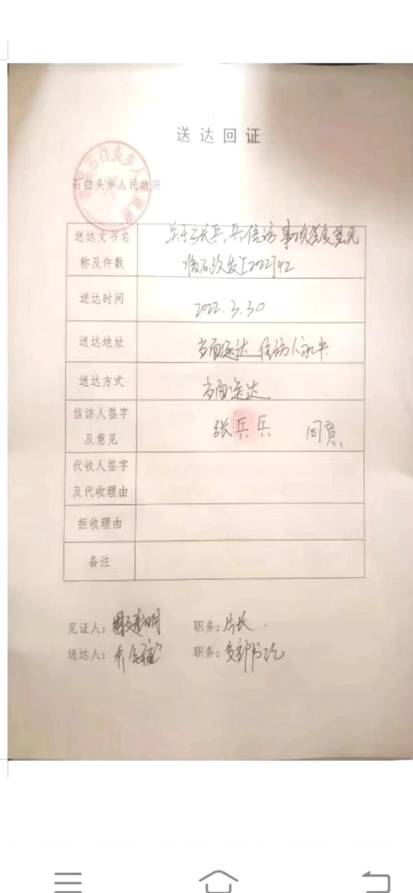 送达回证
石白头乡人民政府
送达文书名
称及件数
关于张兵兵信访事项答复意见
临石政发[2022]42
送达时间
2022.3.30
送达地址
当面送达 信访人
送达方式
当面送达
信访人签字
及意见
张兵兵 同意
代收人签字
及代收理由
拒收理由
备注
见证人: 职务:片长
送达人: 职务:支部书记